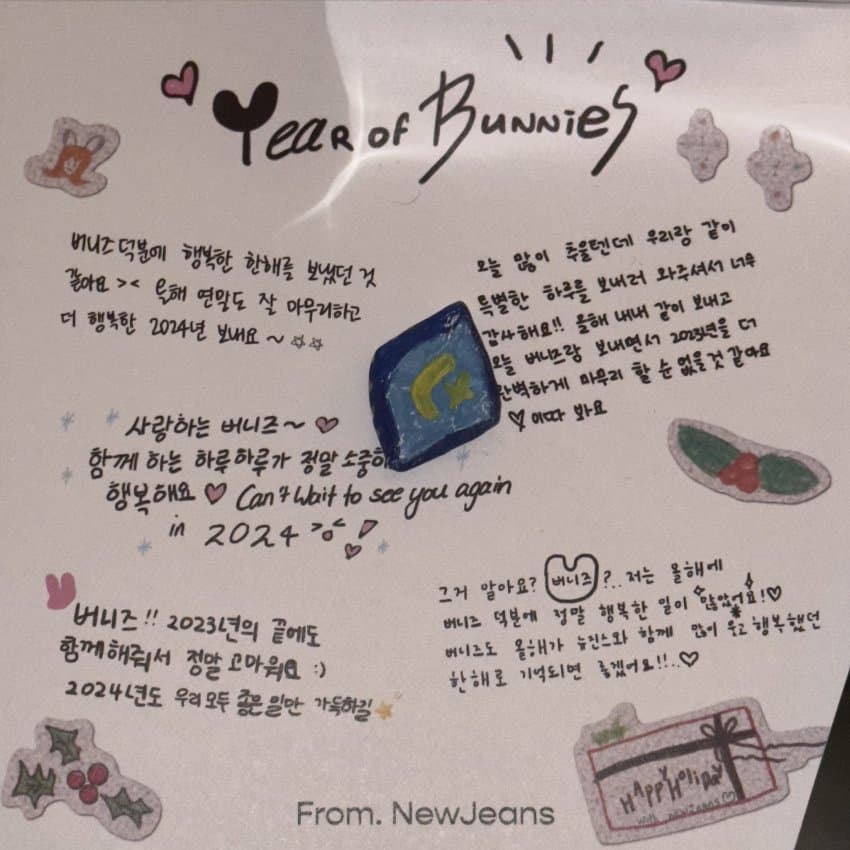 Year of Bunnies
버니즈 덕분에 행복한 한해를 보냈던 것
같아요 >< 올해 연말도 잘 마무리하고
더 행복한 2024년 보내요 ~ ☆☆
오늘 많이 추울텐데 우리랑 같이
특별한 하루를 보내러 와주셔서 너무
감사해요!! 올해 내내 같이 보내고
오늘 버니즈랑 보내면서 2023년을 더
완벽하게 마무리 할 순 없을 것 같아요
♡ 이따 봐요
사랑하는 버니즈~ ♡
함께 하는 하루하루가 정말 소중하
행복해요 ♡ Can't wait to see you again
in 2024 >o< !
버니즈!! 2023년의 끝에도
함께해줘서 정말 고마워요 :)
2024년도 우리 모두 좋은 일만 가득하길
그거 알아요? 버니즈?.. 저는 올해에
버니즈 덕분에 정말 행복한 일이 많았어요!♡
버니즈도 올해가 뉴진스와 함께 많이 웃고 행복했던
한해로 기억되면 좋겠어요!!..♡
Happy Holiday
with NewJeans ♡
From. NewJeans